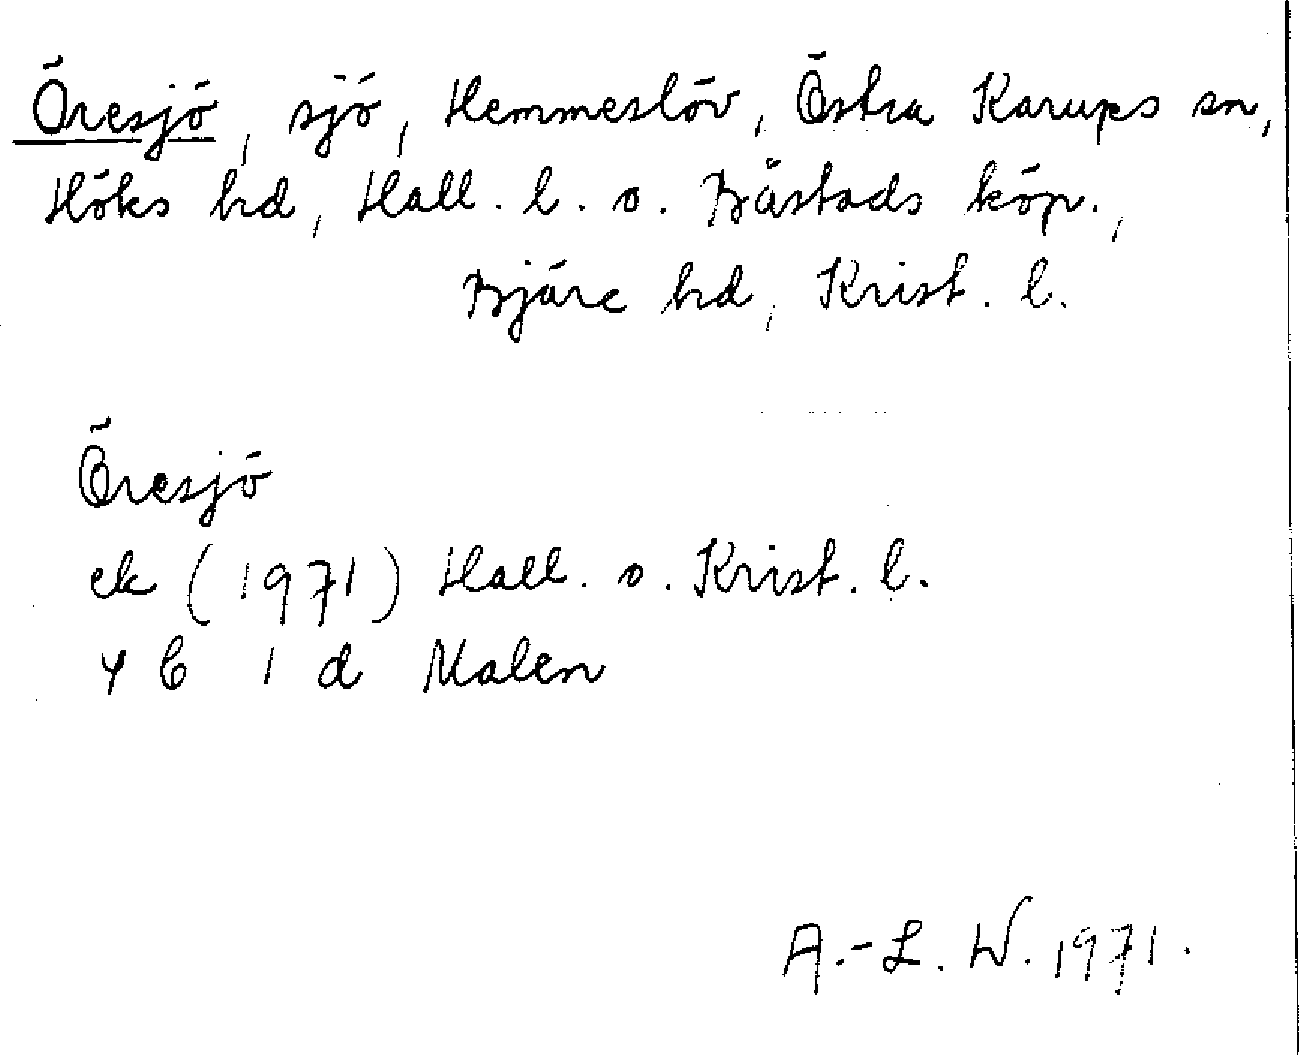 Öresjö, sjö, Hemmeslöv, Östra Karups sn,
Höks hd, Hall. l. o. Båstads köp.,
Bjäre hd, Krist. l.
Öresjö
ek (1971) Hall. o. Krist. l.
4 C 1 d Malen
A.-L. W. 1971.